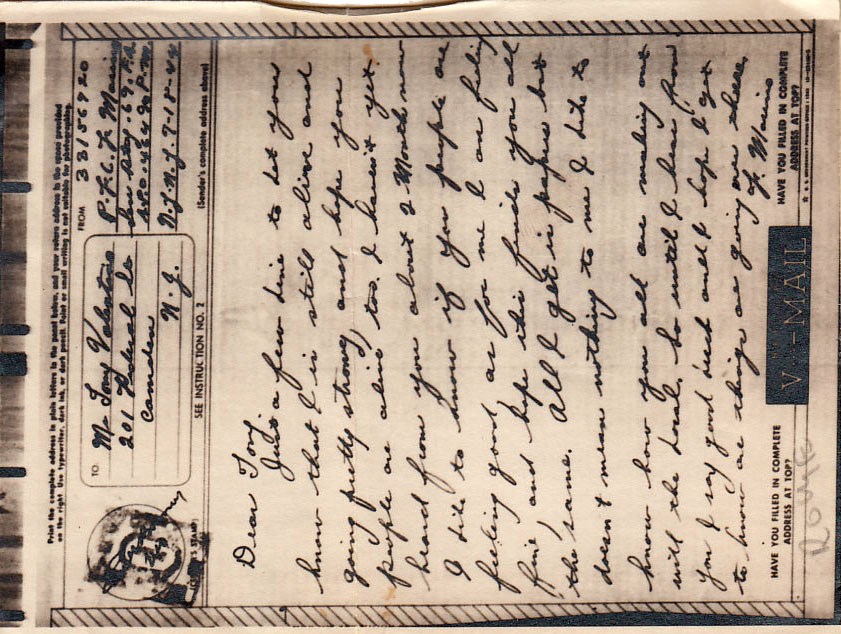 Print the complete address in plain letters in the panel below, and your return address in the space provided
on the right. Use typewriter, dark ink, or dark pencil. Faint or small writing is not suitable for photographing.
TO
Mr Tony Valentino
201 Federal St
Camden
N. J.
FROM
33156920
P.F.C. F. Marino
Serv Btry. 69. F.A.
A.P.O. 454 % P.M.
N.Y. N.Y. 7-18-44
(Sender's complete address above)
SEE INSTRUCTION NO. 2
Dear Tony.
Just a few line to let you
know that I is still alive and
going pretty strong, and hope you
people are alive, too. I haven't yet
heard from you about 2 Month now
I like to know if you people are
feeling good, as for me I am feeling
fine, and hope this finds you all
the same. All I get is papers but
doesn't mean nothing to me I like to
know how you all are making out
with the local. So until I hear from
you I say good luck and I hope I got
to know as things as going over there.
F. Marino
HAVE YOU FILLED IN COMPLETE
ADDRESS AT TOP?
V···-MAIL
HAVE YOU FILLED IN COMPLETE
ADDRESS AT TOP?